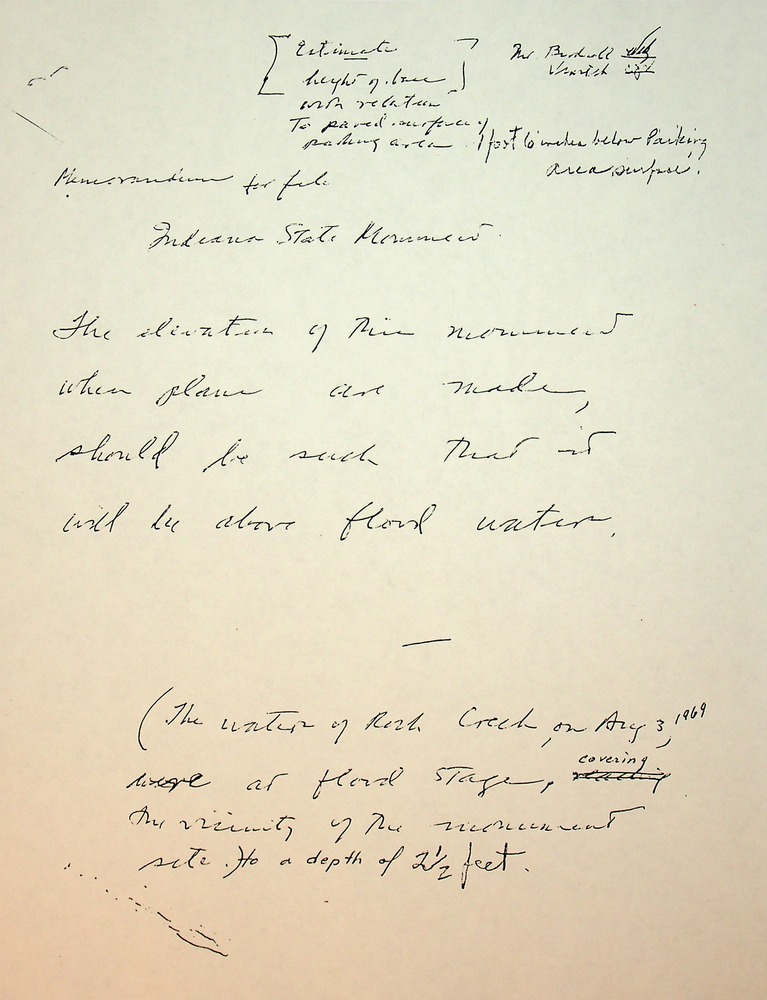 [Estimate
height of base]
with relation
To paved surface of
parking area. 1 foot 6 inches below Parking
area surface.
Mr.
Memorandum for file
Indiana State Monument
The elevation of this monument
when plans are made,
should be such that it
will be above flood waters.
—
(The waters of Rock Creek, on Aug 3, 1969
were at flood stage, covering
the vicinity of the monument
site.) to a depth of 2 1/2 feet.